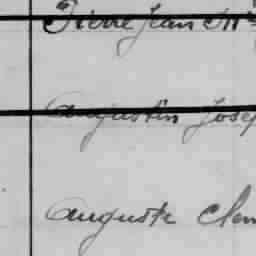 Pierre Jean M
Augustin Josep
Auguste Clem